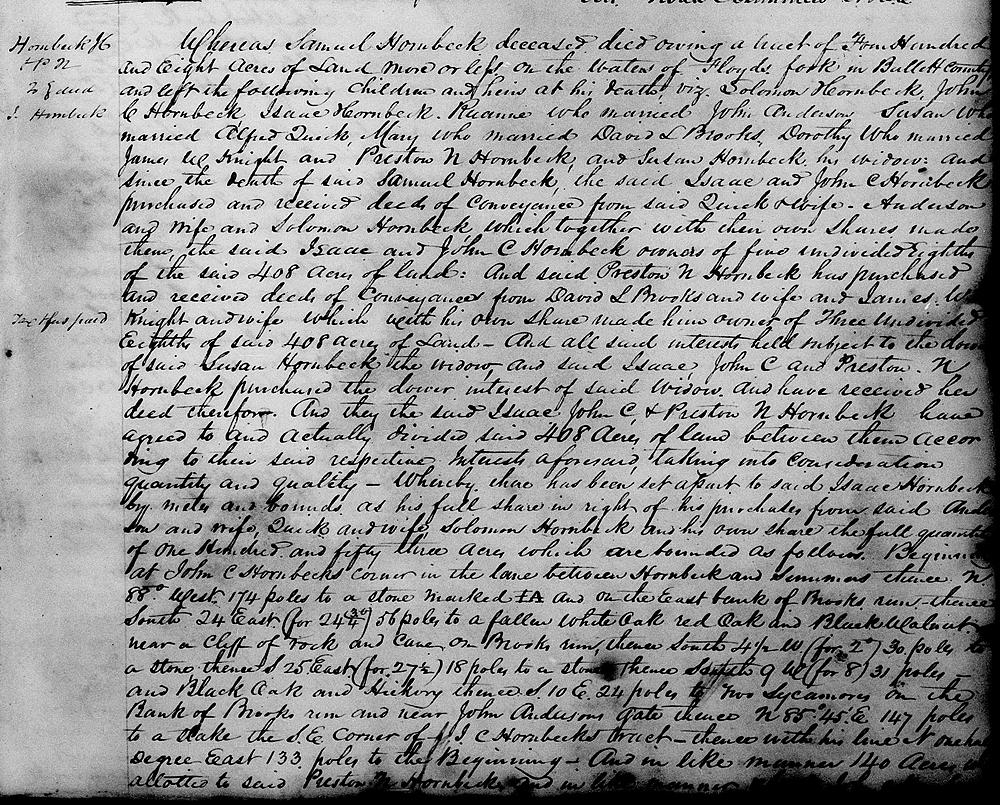 Hornbeck JC
& P N
To } deed
I. Hornbeck
Tax & fees paid
Whereas Samuel Hornbeck deceased, died owing a tract of Four Hundred
and Eight Acres of Land more or less on the waters of Floyds fork in Bullitt County
and left the following children and heirs at his death viz. Solomon Hornbeck, John
C Hornbeck, Isaac Hornbeck. Ruanne who married John Anderson Susan who
married Alfred Quick, Mary who married David L Brooks, Dorothy who married
James W Knight and Preston N Hornbeck, and Susan Hornbeck, his widow: and
since the death of said Samuel Hornbeck, the said Isaac and John C Hornbeck
purchased and received deeds of Conveyance from said Quick & wife - Anderson
and wife and Solomon Hornbeck, which together with their own shares made
them the said Isaac and John C Hornbeck owners of five undivided Eighths
of the said 408 Acres of land: And said Preston N Hornbeck has purchased
and received deeds of Conveyance from David L Brooks and wife and James. W
Knight and wife which with his own share made him owner of Three Undivided
Eighths of said 408 acres of Land - And all said interests held subject to the dower
of said Susan Hornbeck the widow, and said Isaac, John C and Preston. N
Hornbeck purchased the dower interest of said widow. and have received her
deed therefor. And they the said Isaac, John C, & Preston N Hornbeck have
agreed to and actually divided said 408 Acres, of land between them accor
ding to their said respective Interests aforesaid, taking into consideration
quantity and quality - Whereby there has been set apart to said Isaac Hornbeck
by metes and bounds, as his full share in right of his purchases from said Ander
son and wife, Quick and wife, Solomon Hornbeck and his own share the full quantity
of One Hundred and fifty three Acres which are bounded as follows. Beginning
at John C Hornbecks corner in the lane between Hornbeck and Simmons thence N
88° West 174 poles to a stone marked IA And on the East bank of Brooks run - thence
South 24 East (for 24 3/4) 56 poles to a fallen White Oak red Oak and Black Walnut.
near a Cliff of rock and Cave on Brooks run, thence South 4 1/2 W (for 2°) 30 poles to
a stone thence S 25 East (for 27 1/2) 18 poles to a stone thence South 9 W (for 8) 31 poles -
and Black Oak and Hickory thence S. 10 E. 24 poles to two Sycamores on the
Bank of Brooks run and near John Andersons gate thence N 85° 45' E 147 poles
to a stake the S.E Corner of J C Hornbecks tract - thence with his line N one half
Degree East 133 poles to the Beginning - And in like manner 140 Acres is
allotted to said Preston N Hornbeck, and in like manner